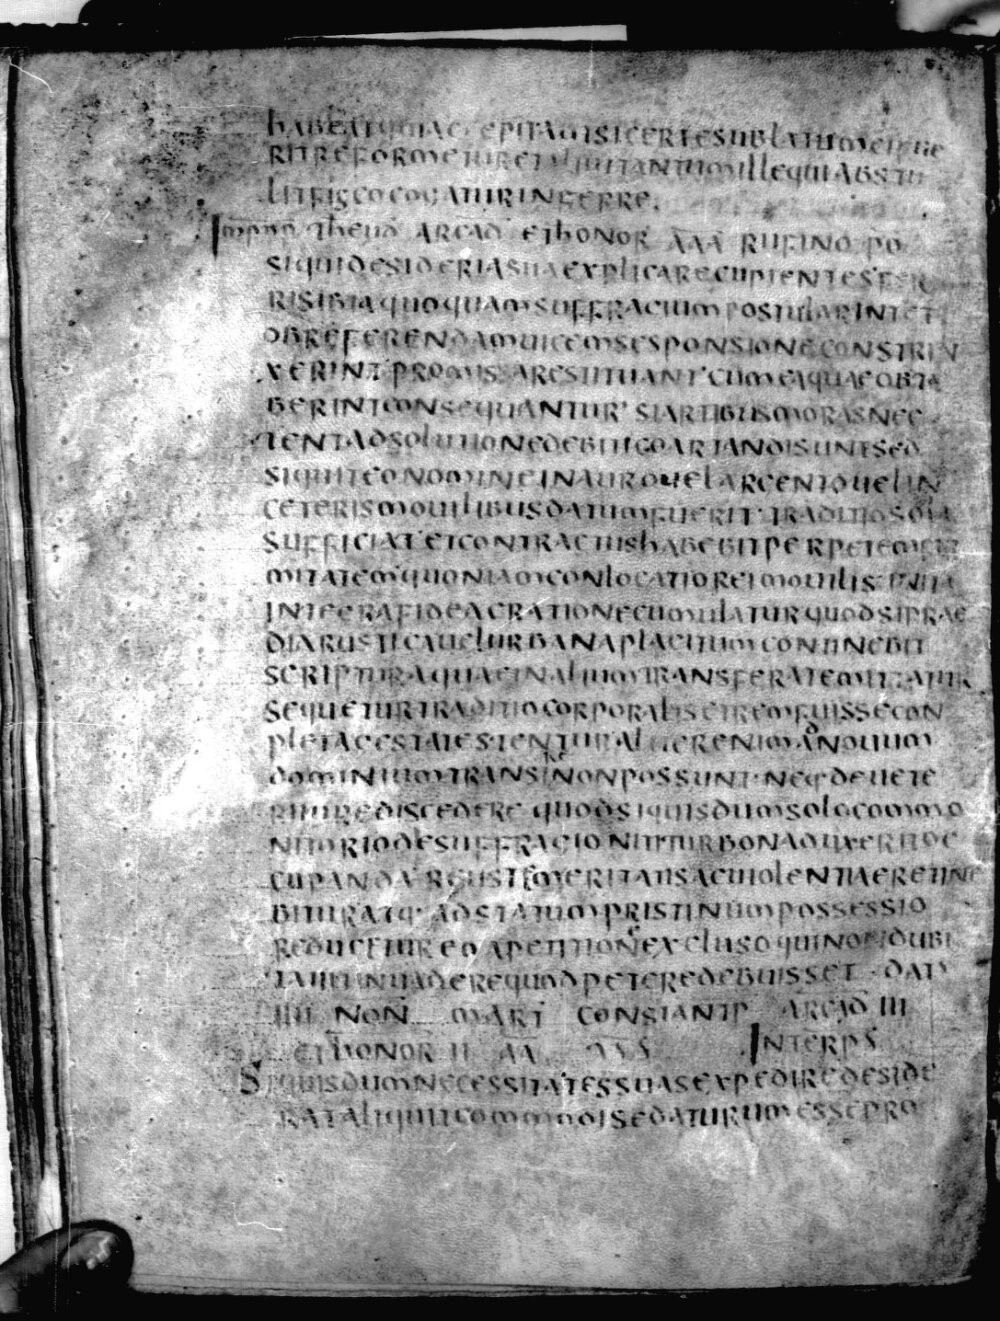 habeat quae cepit aut si certe sublatum
rit reformetur et in tantum ille qui abstu
lit fisco cogatur inferre.
Imppp theod arcad et honor aaa rufino po
si qui desideria sua explicare cupientes fer
ri sibi a quoquam suffragium postularint et
ob referendam uicem se sponsione constrin
xerint promissa restituant cum ea quae opta
berint consequantur si artibus moras nec
tent ad solutione debiti coartandi sunt sed
si quit eo nomine in auro uel argento uel in
ceteris mouilibus datum fuerit traditio sola
sufficiat et contractus habebit perpetem fir
mitatem quoniam conlocatio rei mouilis
integra fide ac ratione cumulatur quod si prae
dia rustica uel urbana placitum continebit
scriptura quae in alium transferat emittatur
sequetur traditio corporalis et rem fuisse con
pleta cestates tentur aliter enim ad nouum
dominium transire non possunt neq de uete
ri iure discedere quod si quis dum solo commo
nitorio de suffragio nititur bona duxerit oc
cupanda reus temeritatis ac uiolentiae retine
bitur atq ad statum pristinum possessio
reducetur eo a petitione excluso qui non dubi
tauit inuadere quod petere debuisset dat
iiii non mart constantp arcad iii
et honor ii aa conss Interps
Si quis dum necessitates suas expedire deside
rat aliquit commodi se daturum esse pro